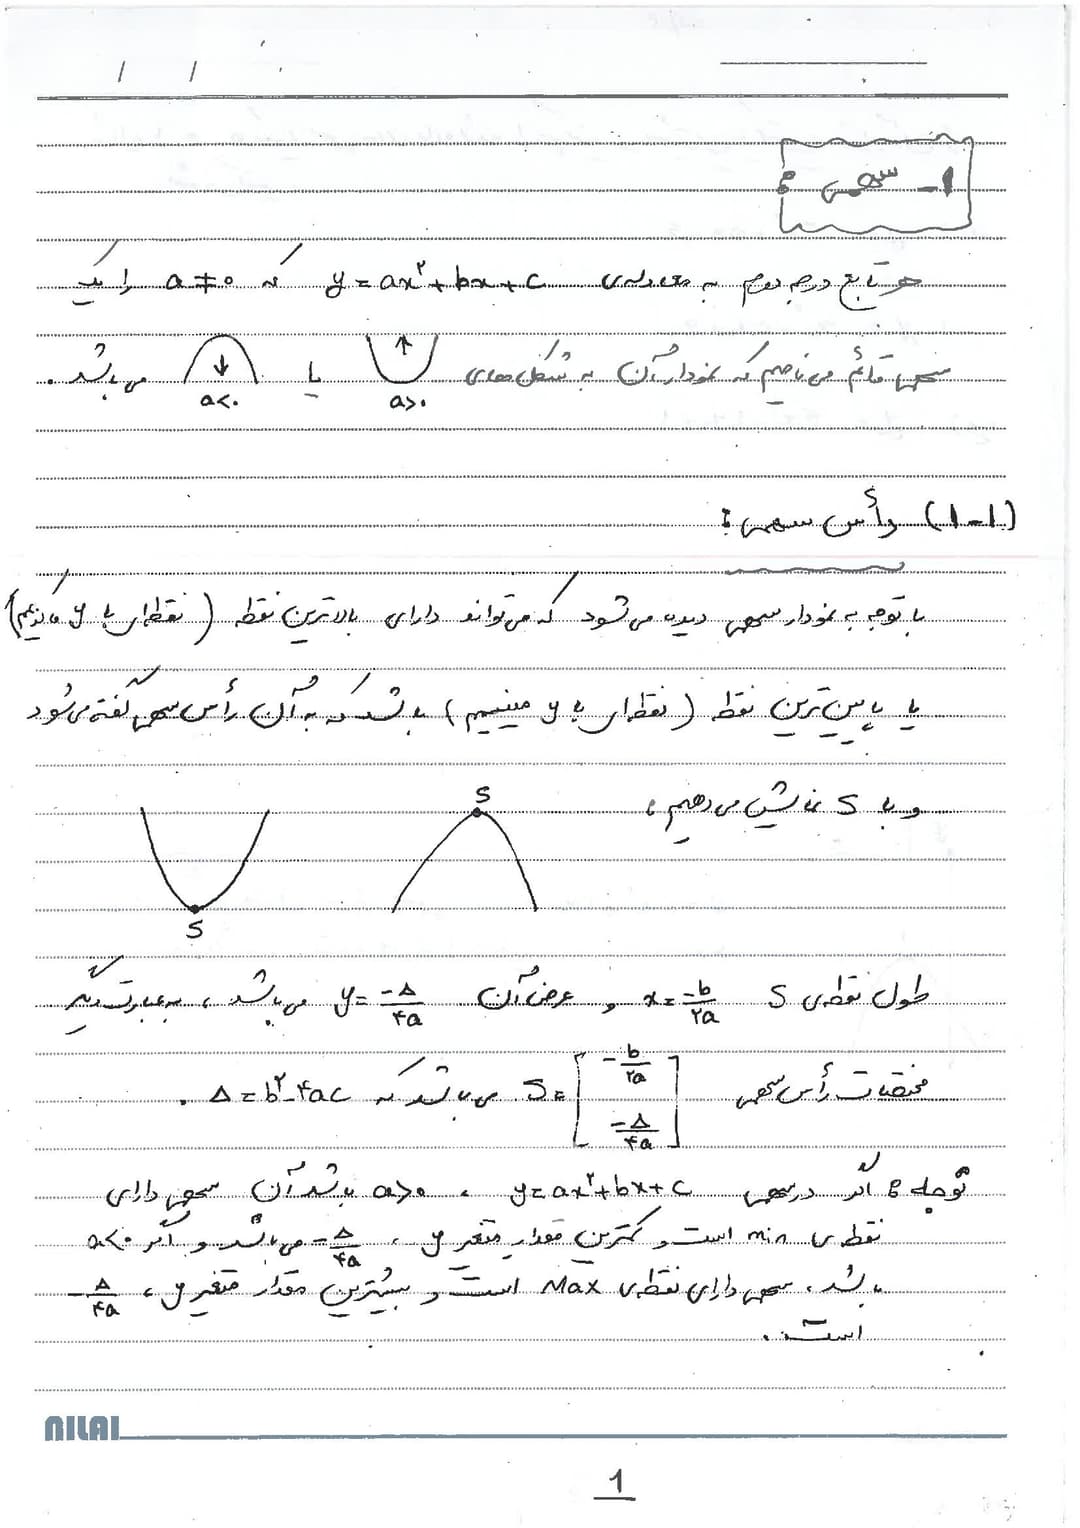 ۱- سهمی :
هر تابع درجه دوم به معادله‌ی y = ax² + bx + c که a ≠ ۰ را یک
سهمی قائم می‌نامیم که نمودار آن به شکل‌های a>۰ یا a<۰ می‌باشد .
(۱-۱) رأس سهمی :
با توجه به نمودار سهمی دیده می‌شود که می‌تواند دارای بالاترین نقطه (نقطه‌ای با y ماکزیمم)
یا پایین‌ترین نقطه (نقطه‌ای با y مینیمم) باشد که به آن رأس سهمی گفته می‌شود
و با S نمایش می‌دهیم :
S
S
طول نقطه‌ی S x = -b/۲a و عرض آن y = -Δ/۴a می‌باشد ، به عبارت دیگر
مختصات رأس سهمی S = [-b/۲a -Δ/۴a] می‌باشد که Δ = b² - ۴ac .
توجه : اگر در سهمی y = ax² + bx + c ، a>۰ باشد آن سهمی دارای
نقطه‌ی min است و کمترین مقدار متغیر y ، -Δ/۴a می‌باشد و اگر a<۰
باشد ، سهمی دارای نقطه‌ی Max است و بیشترین مقدار متغیر y ، -Δ/۴a
است .
NILAI
1